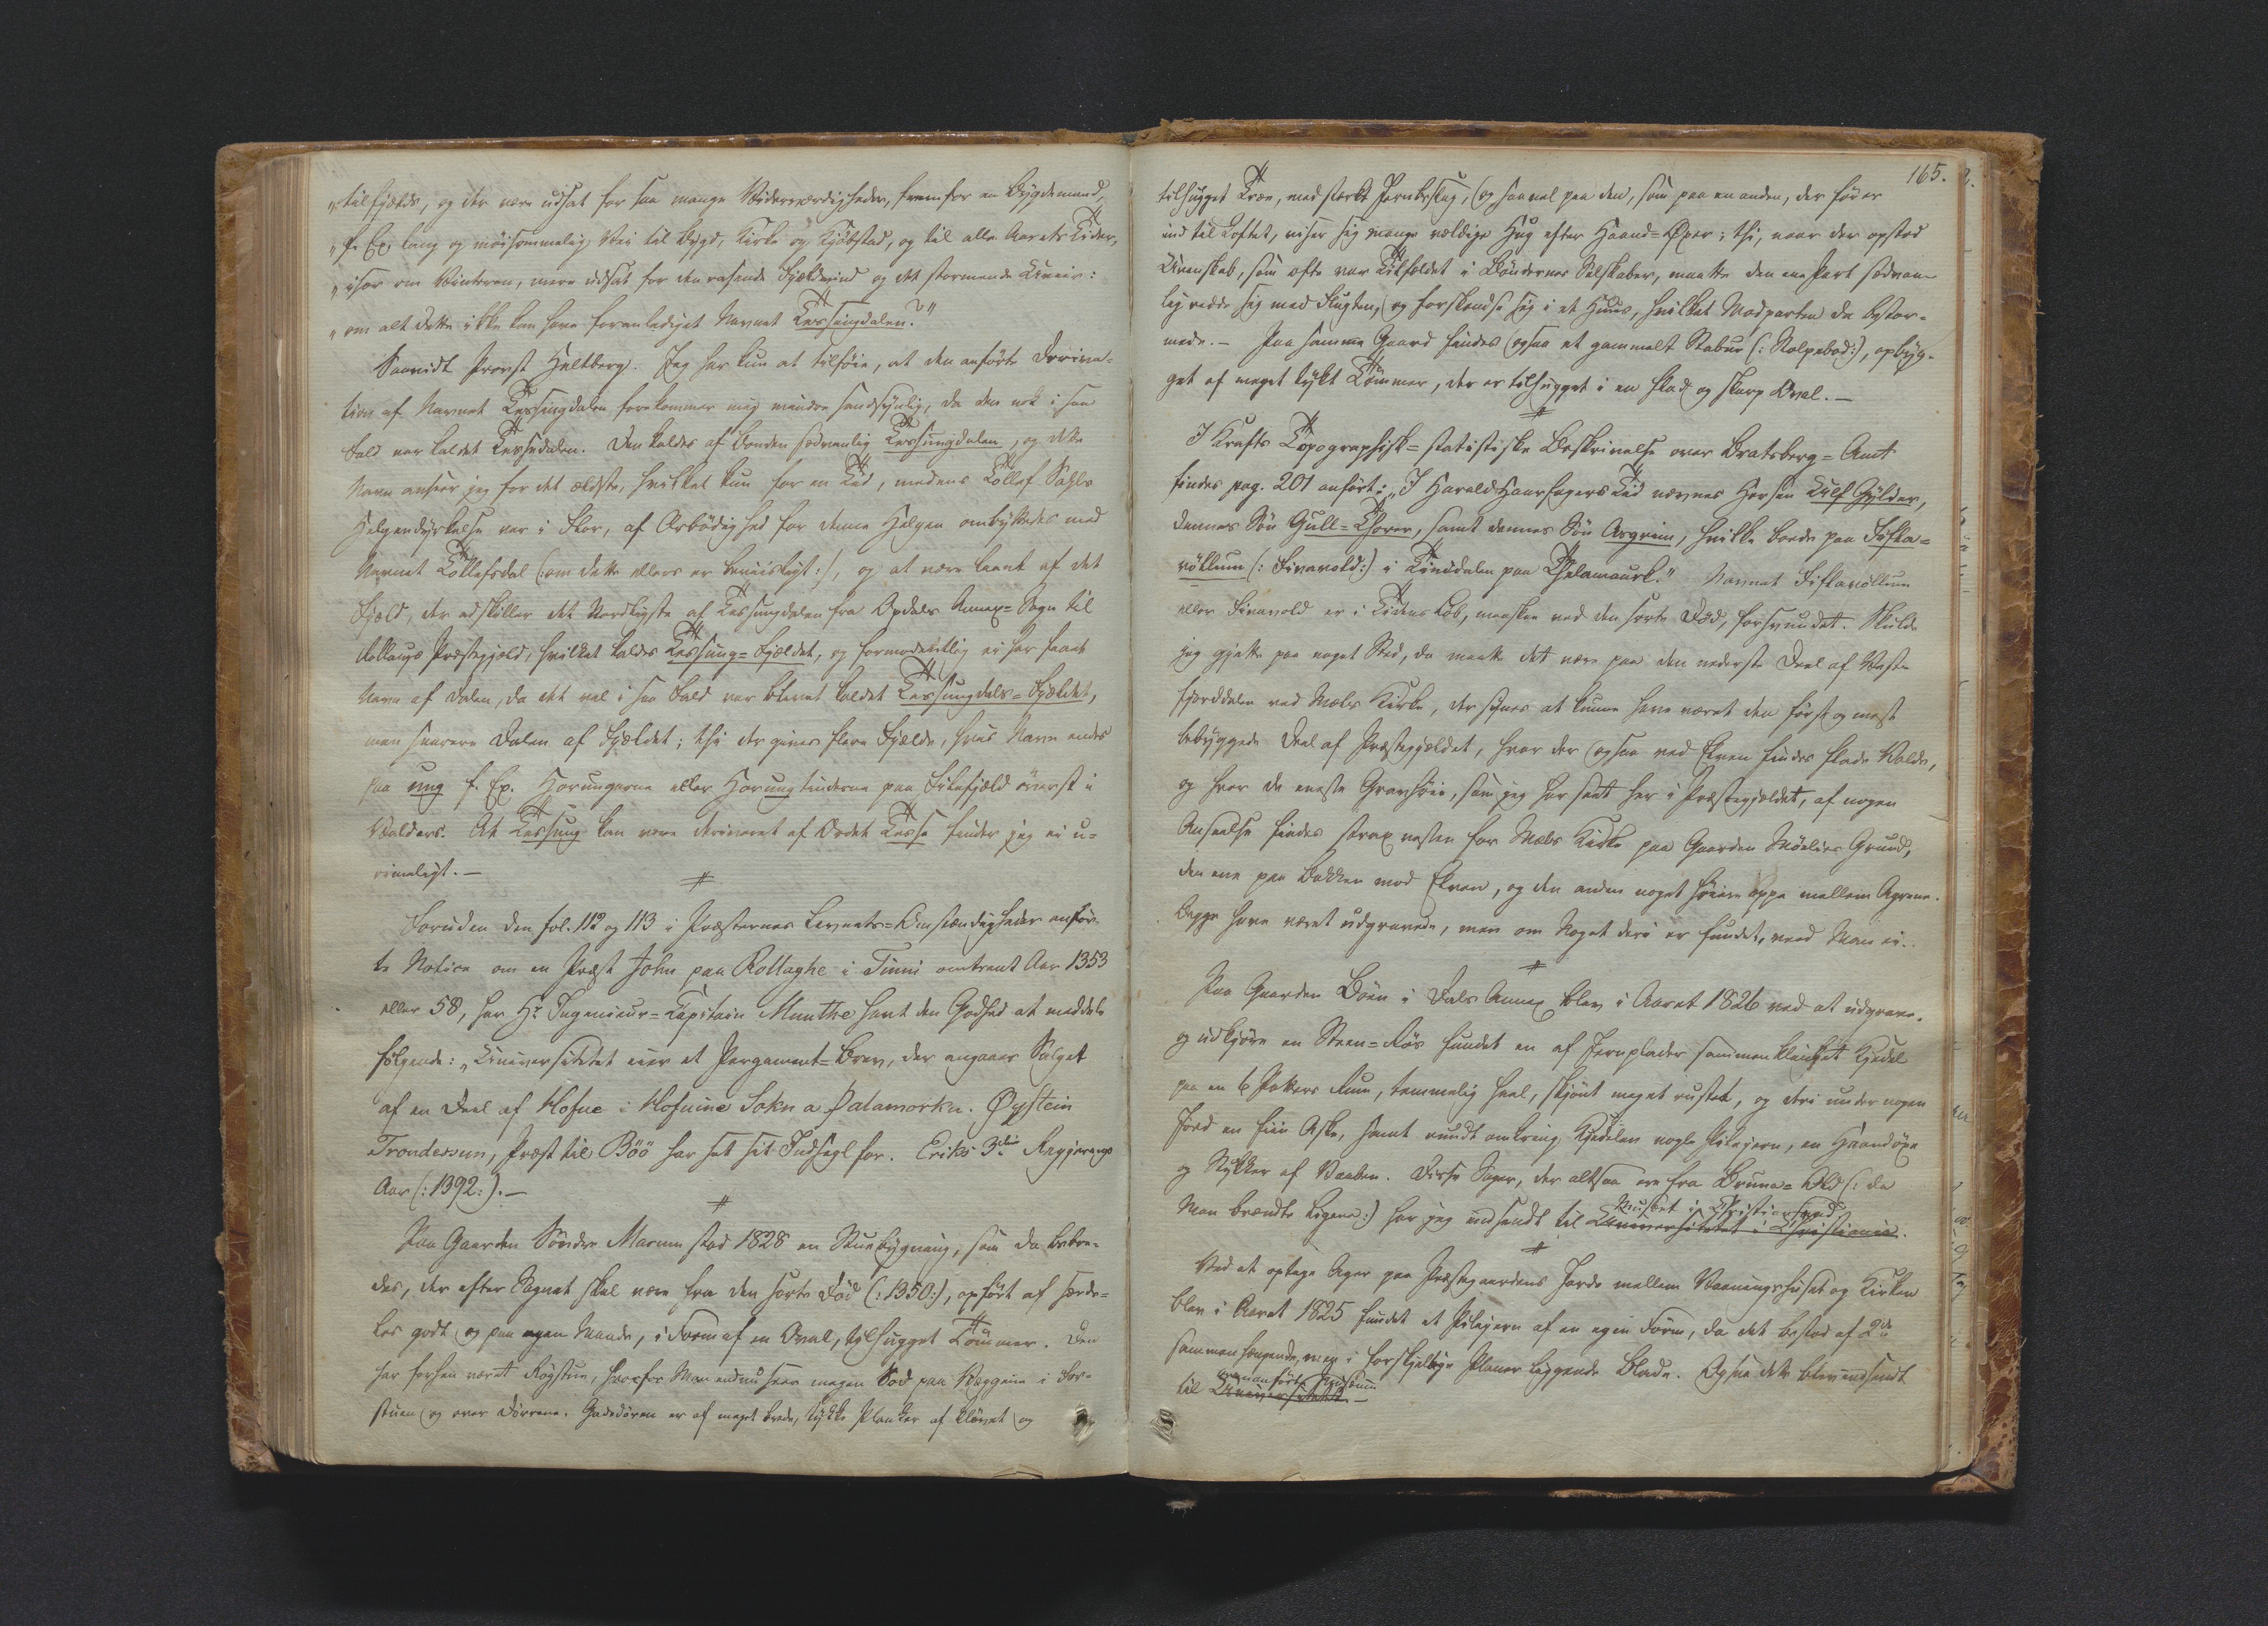 „tilfjælds, og der være udsat for saa mange Widerværdigheder, fremfor en Bygdemand,
„f. Ex. lang og möisommelig Vei til Bygd, Kirke og Kjöbstad, og til alle Aarets Tider,
„især om Vinteren, mere udsat for den rasende Fjeldvind og det stormende Uveir:
„om alt dette ikke kan have foranlediget Navnet Tessungdalen?"
Saavidt Provst Heltberg. Jeg har kun at tilföie, at den anförte Deriva-
tion af Navnet Tessungdalen forekommer mig mindre sandsynlig, da den nok i saa
Fald var kaldet Tessedalen. Den kaldes af Bonden sædvanlig Tessungdalen, og dette
Navn anseer jeg for det ældste, hvilket kun for en Tid, medens Tollef
Helgendyrkelse var i Flor, af Ærbödighed for denne Helgen ombyttedes med
Navnet Tollefsdal (:om dette ellers er beviisligt:), og at være laant af det
Fjeld, der adskiller det Nordligste af Tessungdalen fra Opdals Annex-Sogn til
Rollaugs Præstegjæld, hvilket kaldes Tessung-Fjeldet, og formodentlig ei har faaet
Navn af Dalen, da det vel i saa Fald var blevet kaldet Tessungdals-Fjeldet,
men snarere Dalen af Fjeldet; thi der gives flere Fjelde, hvis Navn endes
paa ung f. Ex. Horungerne eller Horungtinderne paa Filefjæld överst i
Valders. At Tessung kan være deriveret af Ordet Tesse finder jeg ei u-
rimeligt.—
Foruden den fol. 112 og 113 i Præsternes Levnets-Omstændigheder anför-
te Notice om en Præst John paa Rollaghe i Tinni omtrent Aar 1353
eller 58, har Hr Ingenieur-Capitain Munthe havt den Godhed at meddele
fölgende: „Universitetet eier et Pergament-Brev, der angaaer Salget
af en Deel af Hofue i Hofuine Sokn a Þalamorku. Øystein
Trondessun, Præst til Böö har sat sit Indsegl for. Eriks 3die Regjerings
Aar (:1392:).—
Paa Gaarden Söndre Marum stod 1828 en Stuebygning, som da beboe-
des, der efter Sagnet skal være fra den sorte Död (:1350:), opfört af særde-
les godt og paa egen Maade, i Form af en Oval, tilhugget Tömmer. Den
har forhen været Røgstue, hvorfor Man endnu seer megen Sod paa Væggene i For-
stuen og over Dörrene. Gadedören er af meget brede, tykke Planker af klövet og
165.
tilhugget Træe, med stærkt Jernbeslag, og saavel paa den, som paa en anden, der förer
ind til Loftet, viser sig mange vældige Hug efter Haand-Öxer; thi, naar der opstod
Uvenskab, som ofte var Tilfældet i Böndernes Selskaber, maatte den ene Part sædvan-
lig redde sig med Flugten, og forskandse sig i et Huus, hvilket Modparten da bestor-
mede.— Paa samme Gaard findes ogsaa et gammelt Stabur (:Stolpebod:), opbyg-
get af meget tykt Tömmer, der er tilhugget i en flad og skarp Oval.—
I Krafts Topographisk-statistiske Beskrivelse over Bratsberg-Amt
findes pag. 201 anfört: „I Harald Haarfagers Tid nævnes Hersen Ulf Gylder,
dennes Sön Gull-Thorer, samt dennes Sön Asgrim, hvilke boede paa Fifla-
vøllum (:Fivavold:) i Tinddalen paa Thelamaurk." Navnet Fiflavöllum
eller Fivavold er i Tidens Löb, maaskee ved den sorte Död, forsvundet. Skulde
jeg gjætte paa noget Sted, da maatte det være paa den nederste Deel af Vest-
fjorddalen ved Mæls Kirke, der synes at kunne have været den först og mest
bebyggede Deel af Præstegjældet, hvor der ogsaa ved Elven findes flade Volde,
og hvor de eneste Gravhöie, som jeg har seet her i Præstegjældet, af nogen
Anseelse findes strax vesten for Mæls Kirke paa Gaarden Grund,
den ene paa Bakken mod Elven, og den anden noget höiere oppe mellem Agrene.
Begge have været udgravede, men om Noget deri er fundet, veed Man ei.
Paa Gaarden Böen i Dals Annex blev i Aaret 1826 ved at udgrave
og udkjöre en Steen-Rös fundet en af Jernplader sammenklinket Kjedel
paa en 6 Potters Rum, temmelig heel, skjönt meget rustet, og deri under nogen
Jord en fiin Aske, samt rundt omkring Kjedelen nogle Pilejern, en Haandöxe
og Stykker af Vaaben. Disse Sager, der altsaa ere fra Bruna-Old (:da
Man brændte Ligene:) har jeg indsendt til Universitetet i Christiania.
Museet i Christiansand
Ved at optage Ager paa Præstegaardens Jorde mellem Vaaningshuset og Kirken
blev i Aaret 1825 fundet et Pilejern af en egen Form, da det bestod af 2de
sammenhængende, men i forskjellige Planer liggende Blade. Ogsaa dette blev indsendt
ovenanförte Museum
til Universitetet.—